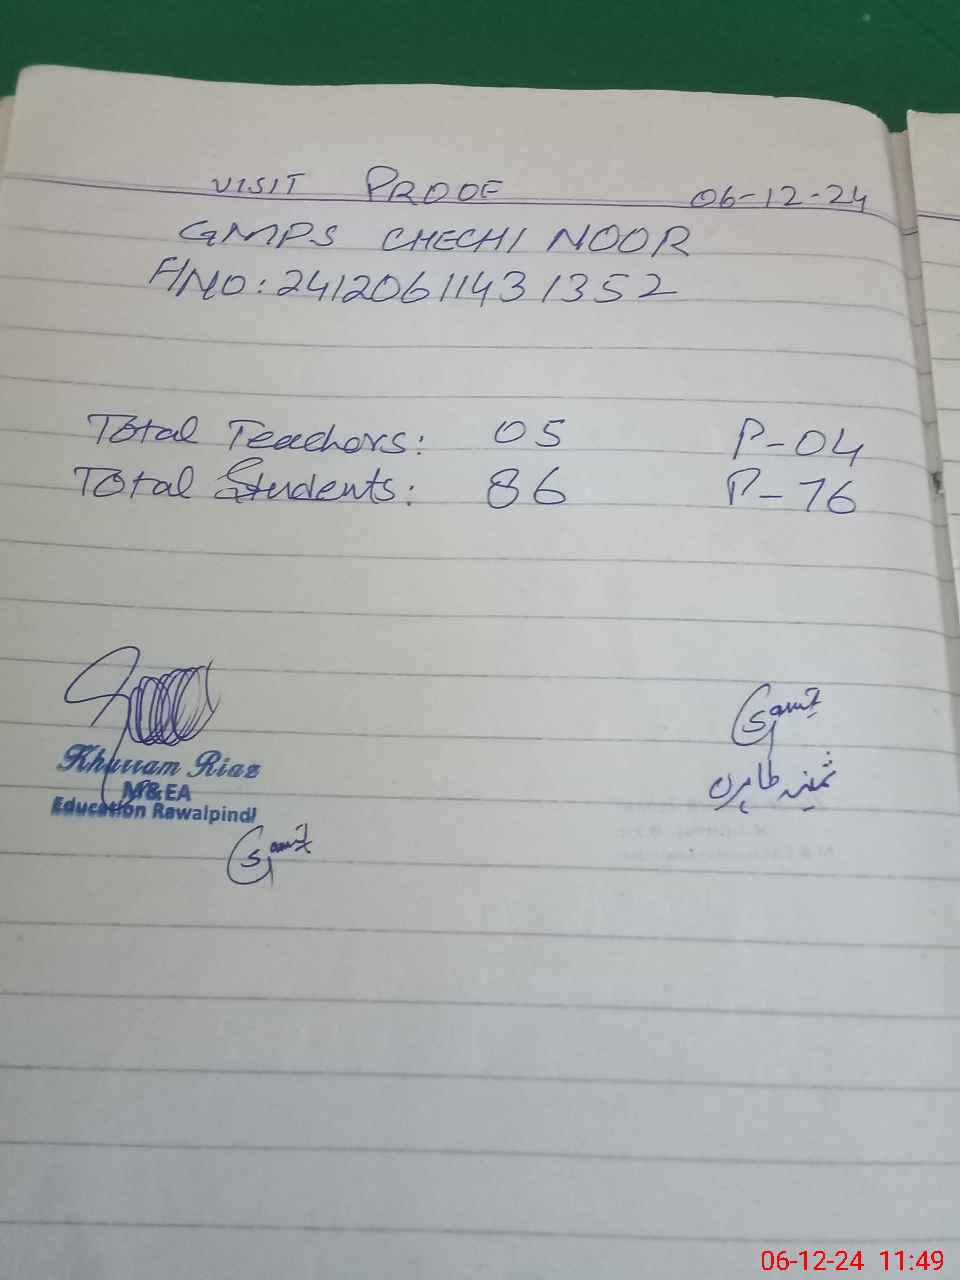 VISIT PROOF 06-12-24
GMPS CHECHI NOOR
F/NO: 24120611431352
Total Teachers: 05 P-04
Total Students: 86 P-76
Khurram Riaz
M&EA
Education Rawalpindi
ثمینہ طاہرہ
06-12-24 11:49